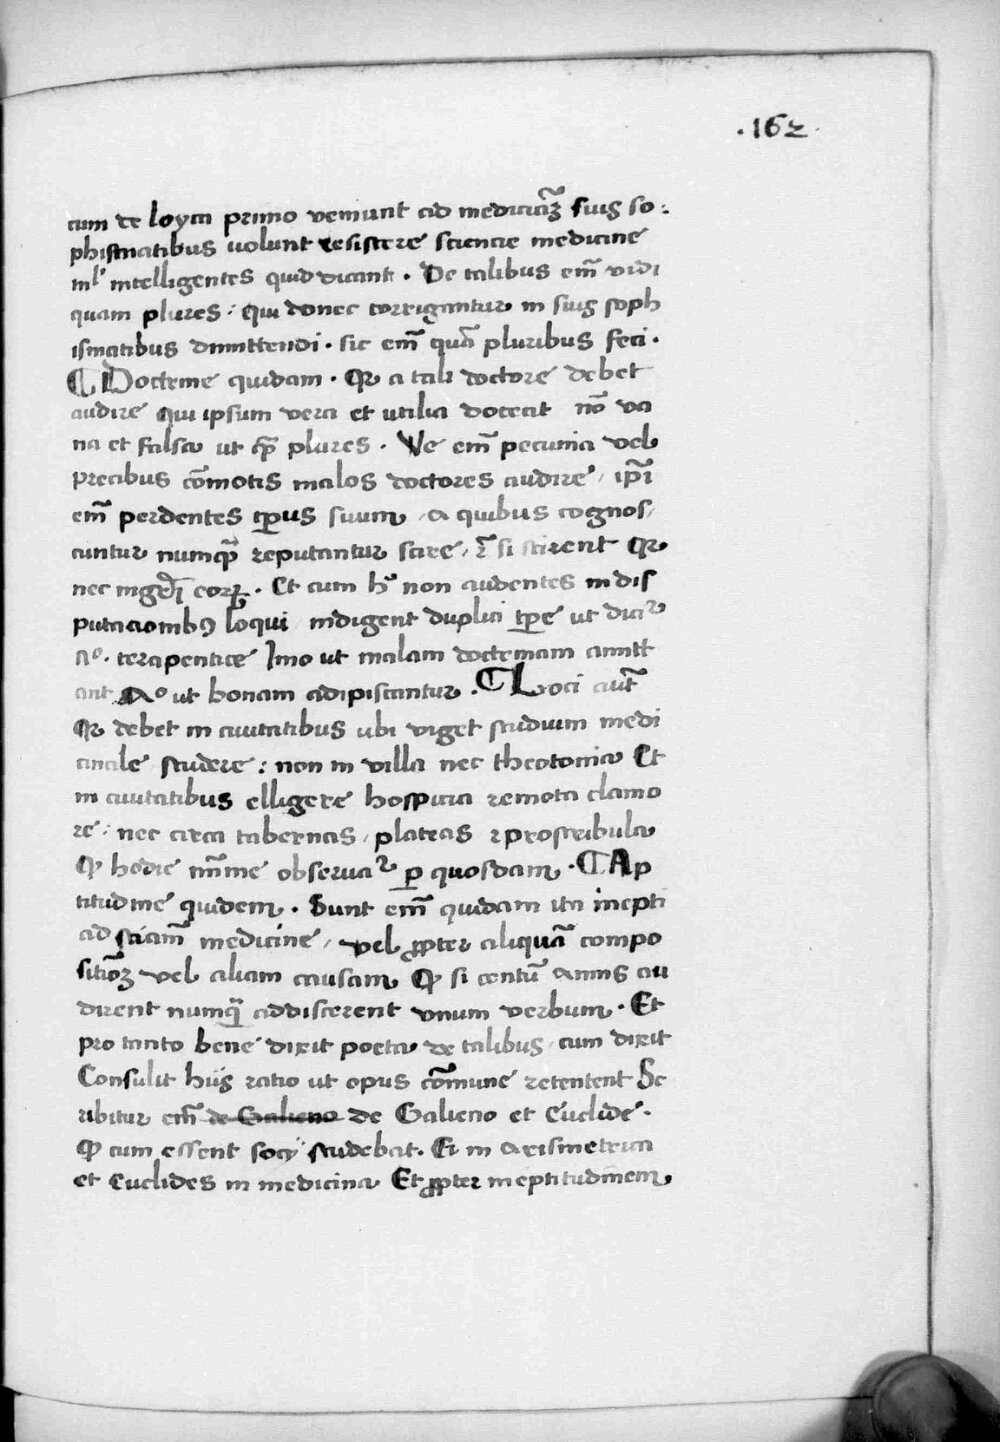 .162.
cum de loyca primo veniunt ad medicinã suis so:
phismatibus uolunt resistere sciencie medicine
nl' intelligentes quid dicant. De talibus em̃ vidi
quam plures: qui donec corrigantur in suis soph
ismatibus dimittendi. sic em̃ quã pluribus feci.
¶ Doctrine quidam. qr a tali doctore debet
audire qui ipsum vera et utilia doceat nõ va
na et falsa ut qp̃ plures. Ne em̃ pecunia vel
precibus cõmotis malos doctores audire, ip̃i
em̃ perdentes tp̃us suum, a quibus cognos,
cuntur numq̃ reputantur scire, si scirent qr
nec eorꝝ. Et cum h' non audentes in dis
putacionibꝯ loqui indigent duplici tp̃e ut dicir
terapentice Imo ut malam doctrinam amitt
ant ut bonam adipiscantur. ¶ Loci aut̃
qr debet in ciuitatibus ubi viget studium medi
cinale studere: non in villa nec theotonia Et
in ciuitatibus elligere hospicia remota clamo
re: nec circa tabernas, plateas ⁊ prostribula
qp hodie mĩme obseruar ꝑ quosdam. ¶ Ap
titudine quidem. Sunt em̃ quidam ita inepti
ad sciam̃ medicine, vel ꝓpter aliquã compo
sitiõꝫ vel aliam causam qp si centũ annis au
dirent numq̃ addiscerent vnum verbum. Et
pro tanto bene dixit poeta de talibus, cum dixit
Consulit hijs ratio ut opus cõmune retentent Sc
ribitur em̃ de Galieno de Galieno et Euclide.
qp cum essent socij studebat. G. in arismetrica
et Euclides in medicina Et ꝓpter ineptitudinem